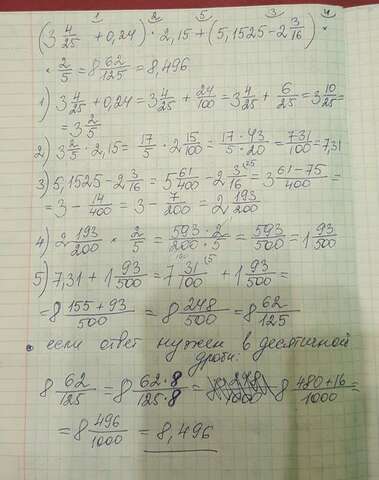 1 2 5 3 4
(3 4/25 + 0,24) · 2,15 + (5,1525 - 2 3/16) ×
× 2/5 = 8 62/125 = 8,496
1) 3 4/25 + 0,24 = 3 4/25 + 24/100 = 3 4/25 + 6/25 = 3 10/25 =
= 3 2/5
2) 3 2/5 · 2,15 = 17/5 · 2 15/100 = 17 · 43/5 · 20 = 731/100 = 7,31
3) 5,1525 - 2 3/16 = 5 61/400 - 2 3/16 (25 = 3 61-75/400 =
= 3 - 14/400 = 3 - 7/200 = 2 193/200
4) 2 193/200 × 2/5 = 593 · 2/200 · 5 = 593/500 = 1 93/500
5) 7,31 + 1 93/500 = 7 31/100 (5 + 1 93/500 =
= 8 155+93/500 = 8 248/500 = 8 62/125
• если ответ нужен в десятичной
дроби:
8 62/125 = 8 62·8/125·8 = 8 480+16/1000 =
= 8 496/1000 = 8,496